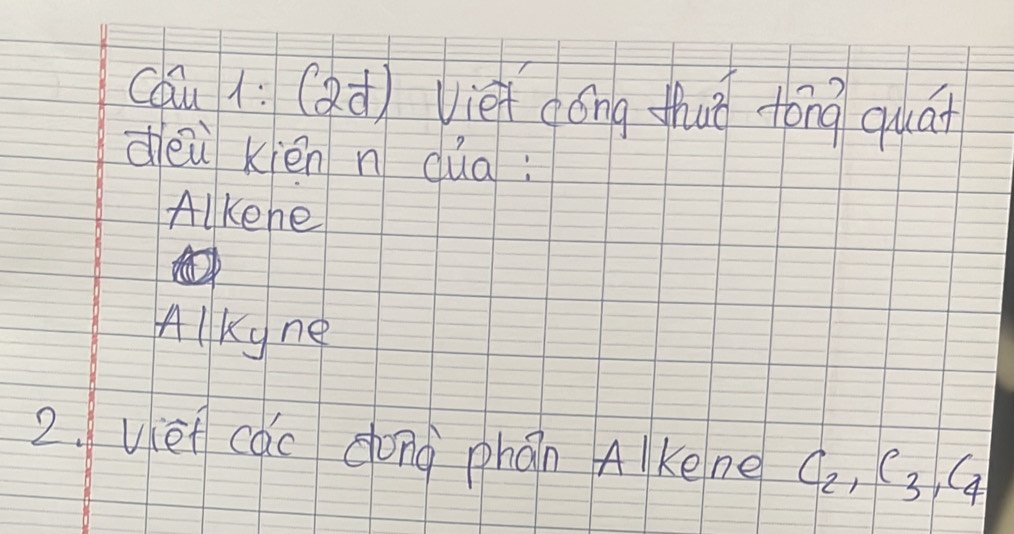 Câu 1: (2đ) Viết công thức tổng quát
điều kiện n của:
Alkene
Alkyne
2. Viết các đồng phân Alkene C₂, C₃, C₄